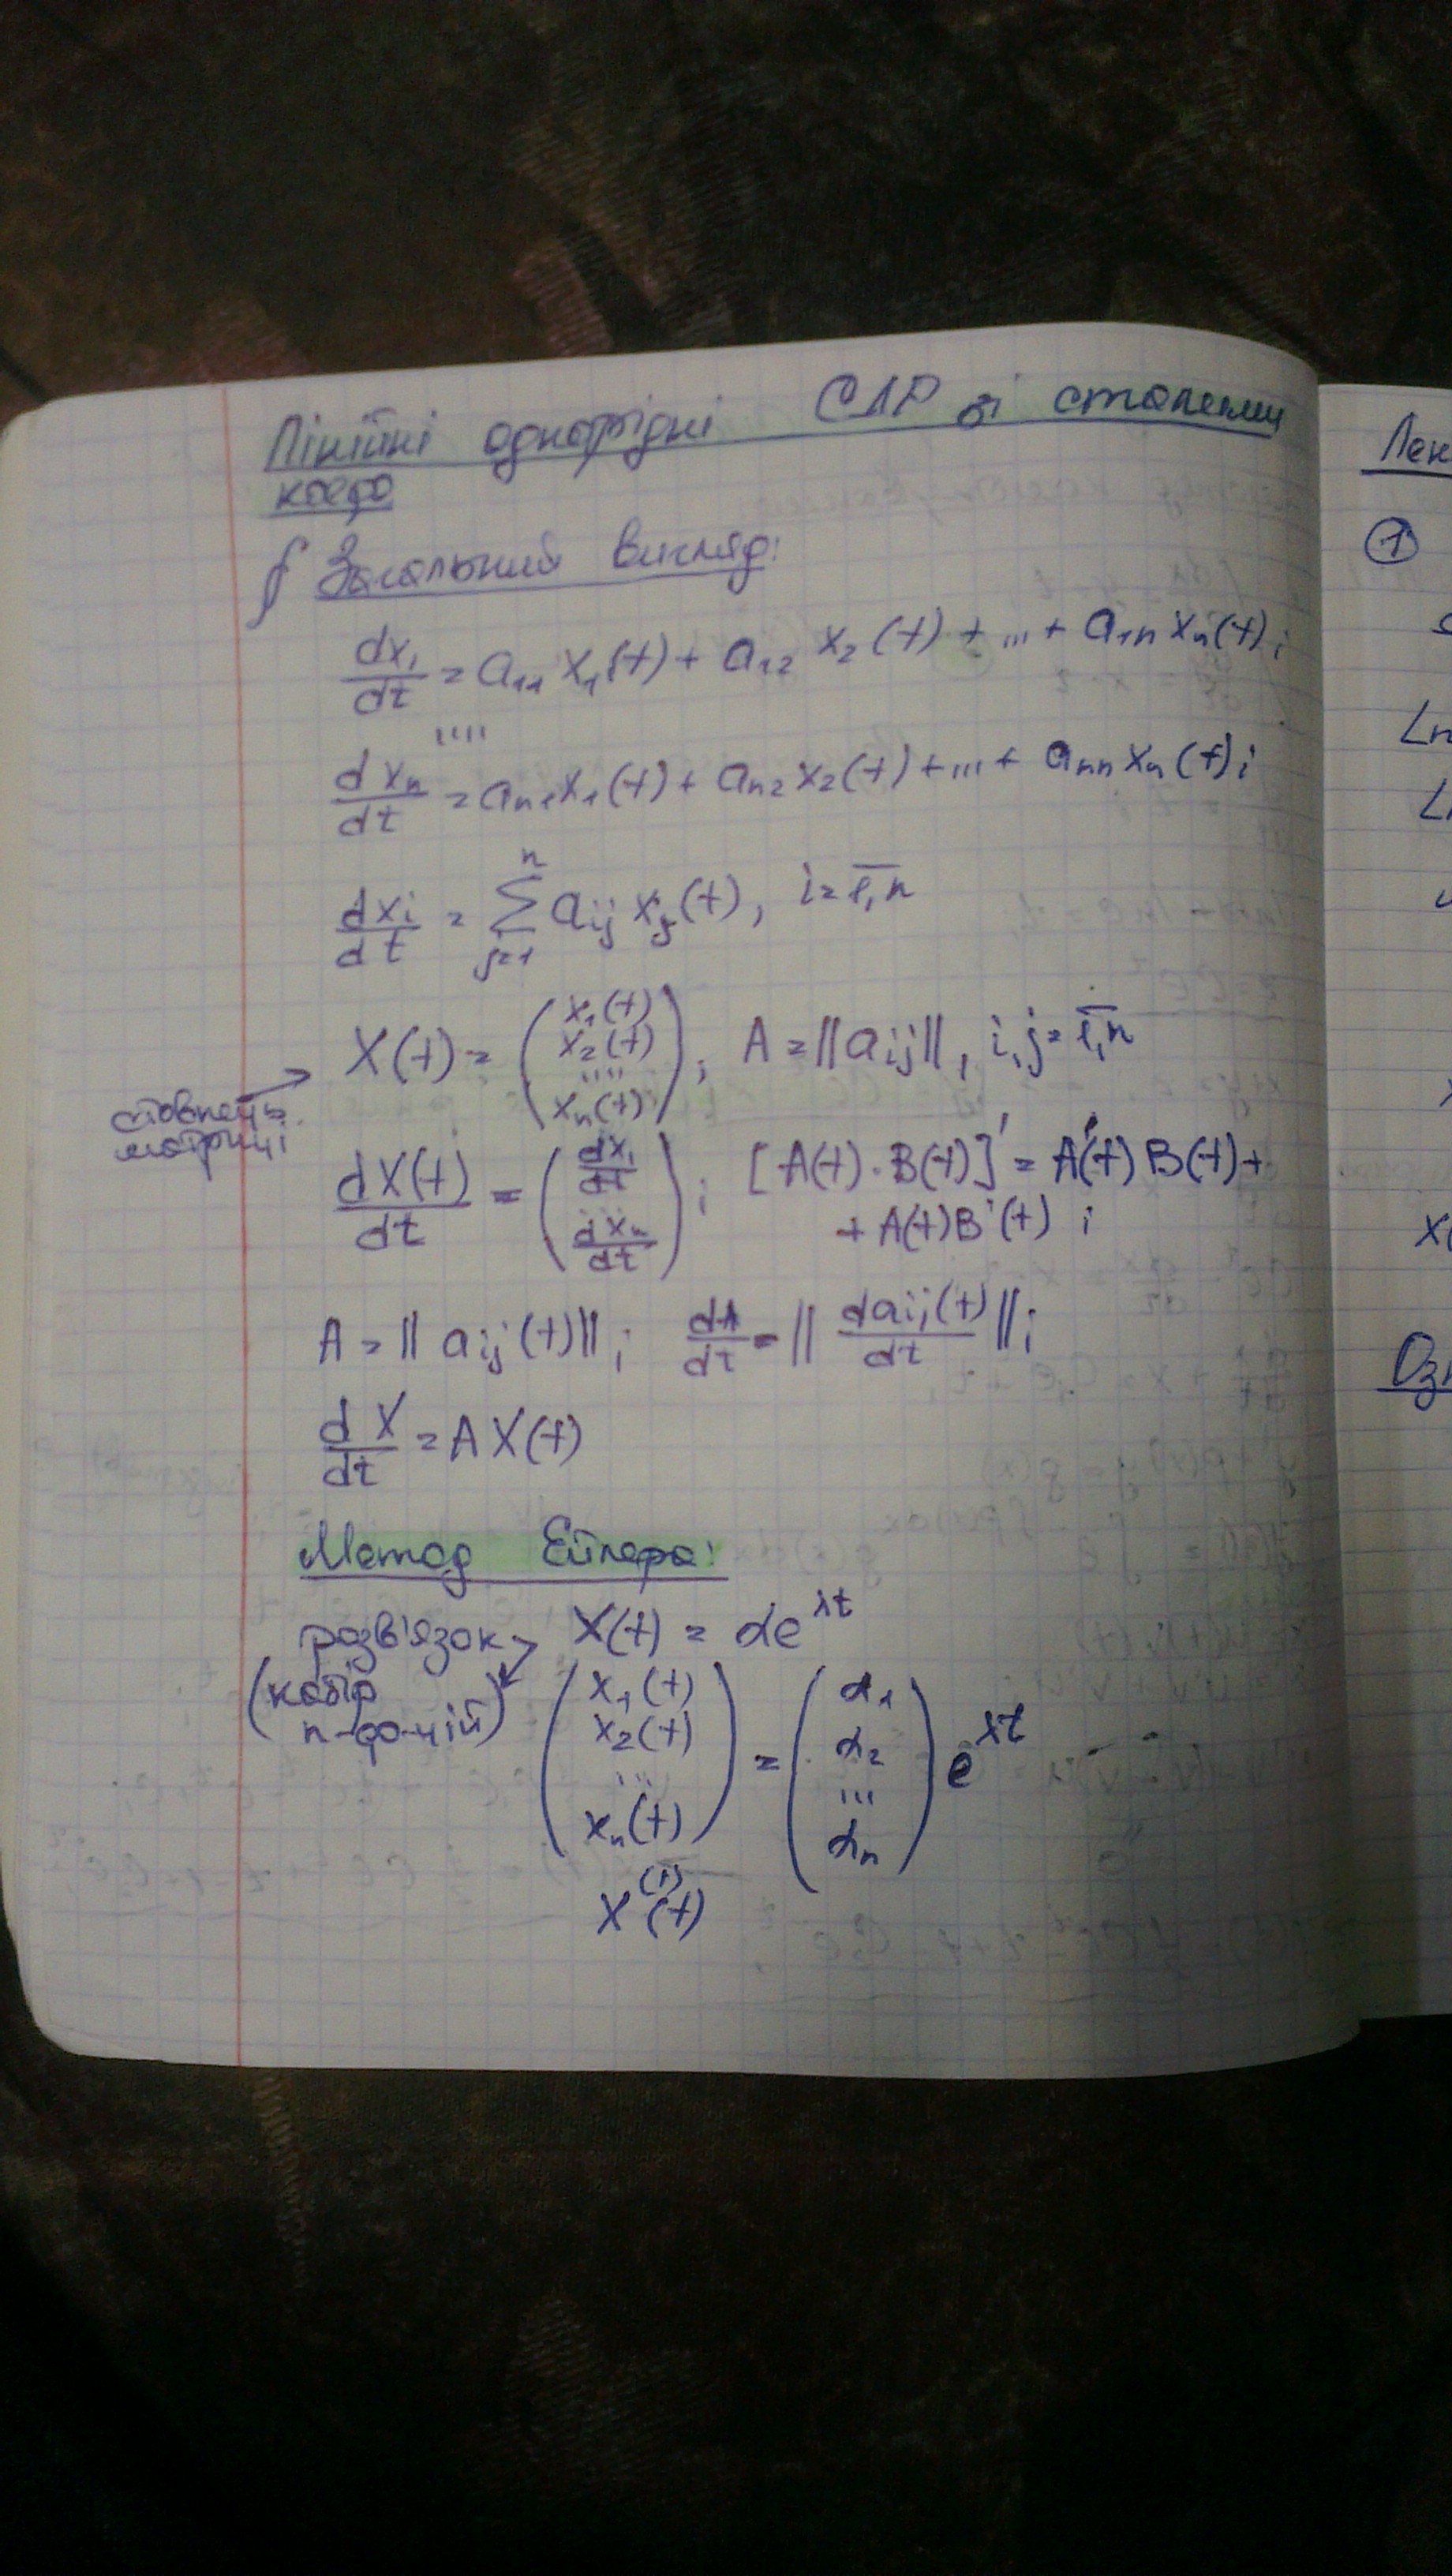 Лінійні однорідні СЛР зі сталими
коеф
∮ Загальний вигляд:
dx₁/dt = a₁₁x₁(t) + a₁₂x₂(t) + ... + a₁ₙxₙ(t);
....
dxₙ/dt = aₙ₁x₁(t) + aₙ₂x₂(t) + ... + aₙₙxₙ(t);
dxᵢ/dt = ∑ⱼ₌₁ⁿ aᵢⱼxⱼ(t), i = 1,n
стовпець
матриці
X(t) = (x₁(t) x₂(t) .... xₙ(t)); A = ||aᵢⱼ||, i,j = 1,n
dX(t)/dt = (dx₁/dt ... dxₙ/dt); [A(t)·B(t)]' = A'(t)B(t) +
+ A(t)B'(t);
A = ||aᵢⱼ(t)||; dA/dt = ||daᵢⱼ(t)/dt||;
dX/dt = AX(t)
Метод Ейлера:
розв'язок X(t) = αe^λt
(набір
n-ф-цій)
(x₁(t) x₂(t) ... xₙ(t)) = (α₁ α₂ ... αₙ) e^λt
X⁽¹⁾(t)
Лек
①
Ln
X(
Озн